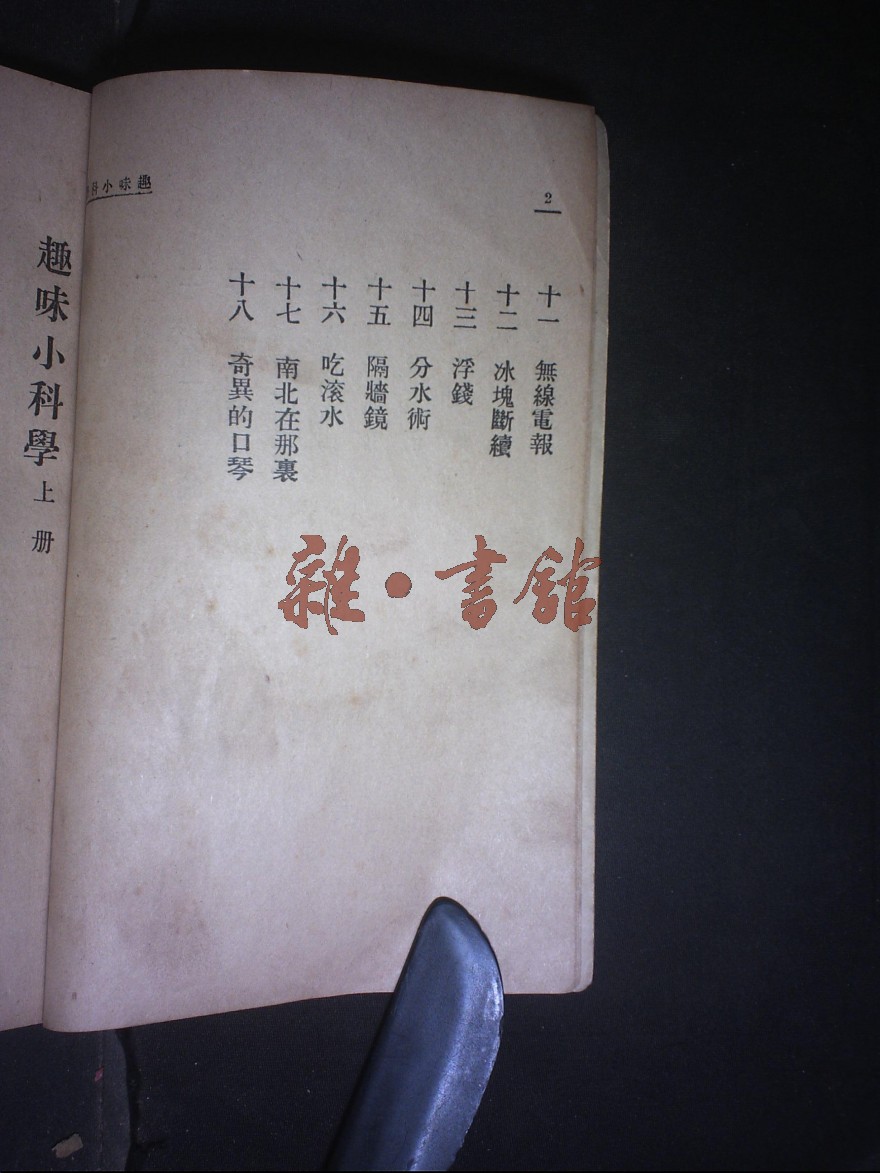 趣味小科
2
十一 無線電報
十二 冰塊斷續
十三 浮錢
十四 分水術
十五 隔牆鏡
十六 吃滾水
十七 南北在那裏
十八 奇異的口琴
趣味小科學 上册
雜•書館